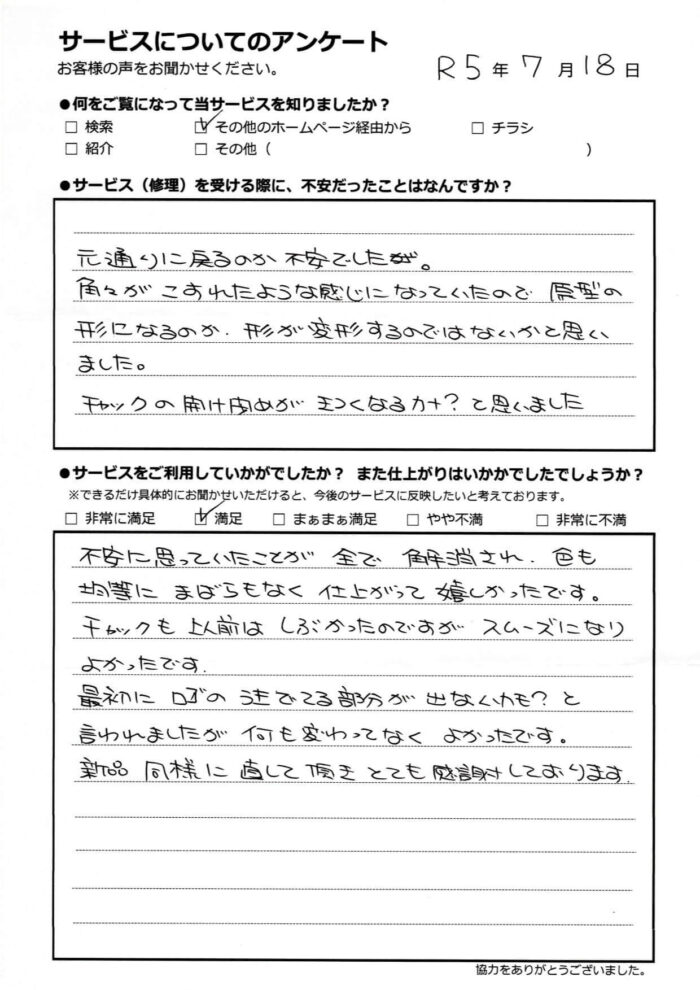 サービスについてのアンケート
お客様の声をお聞かせください。
R5年7月18日
●何をご覧になって当サービスを知りましたか？
□ 検索 ☑ その他のホームページ経由から □ チラシ
□ 紹介 □ その他（ ）
●サービス（修理）を受ける際に、不安だったことはなんですか？
元通りに戻るのか不安でした。
角々がこすれたような感じになっていたので 原型の
形になるのか．形が変形するのではないかと思い
ました。
チャックの開け閉めがきつくなるカナ？と思いました
●サービスをご利用していかがでしたか？ また仕上がりはいかかでしたでしょうか？
※できるだけ具体的にお聞かせいただけると、今後のサービスに反映したいと考えております。
□ 非常に満足 ☑ 満足 □ まぁまぁ満足 □ やや不満 □ 非常に不満
不安に思っていたことが 全て 解消され．色も
均等に まばらもなく 仕上がって 嬉しかったです。
チャックも 以前は しぶかったのですが スムーズになり
よかったです．
最初に ロゴの うきでてる部分が 出なくかも？と
言われましたが 何も変わってなく よかったです。
新品 同様に 直して頂き とても感謝しております．
協力をありがとうございました。